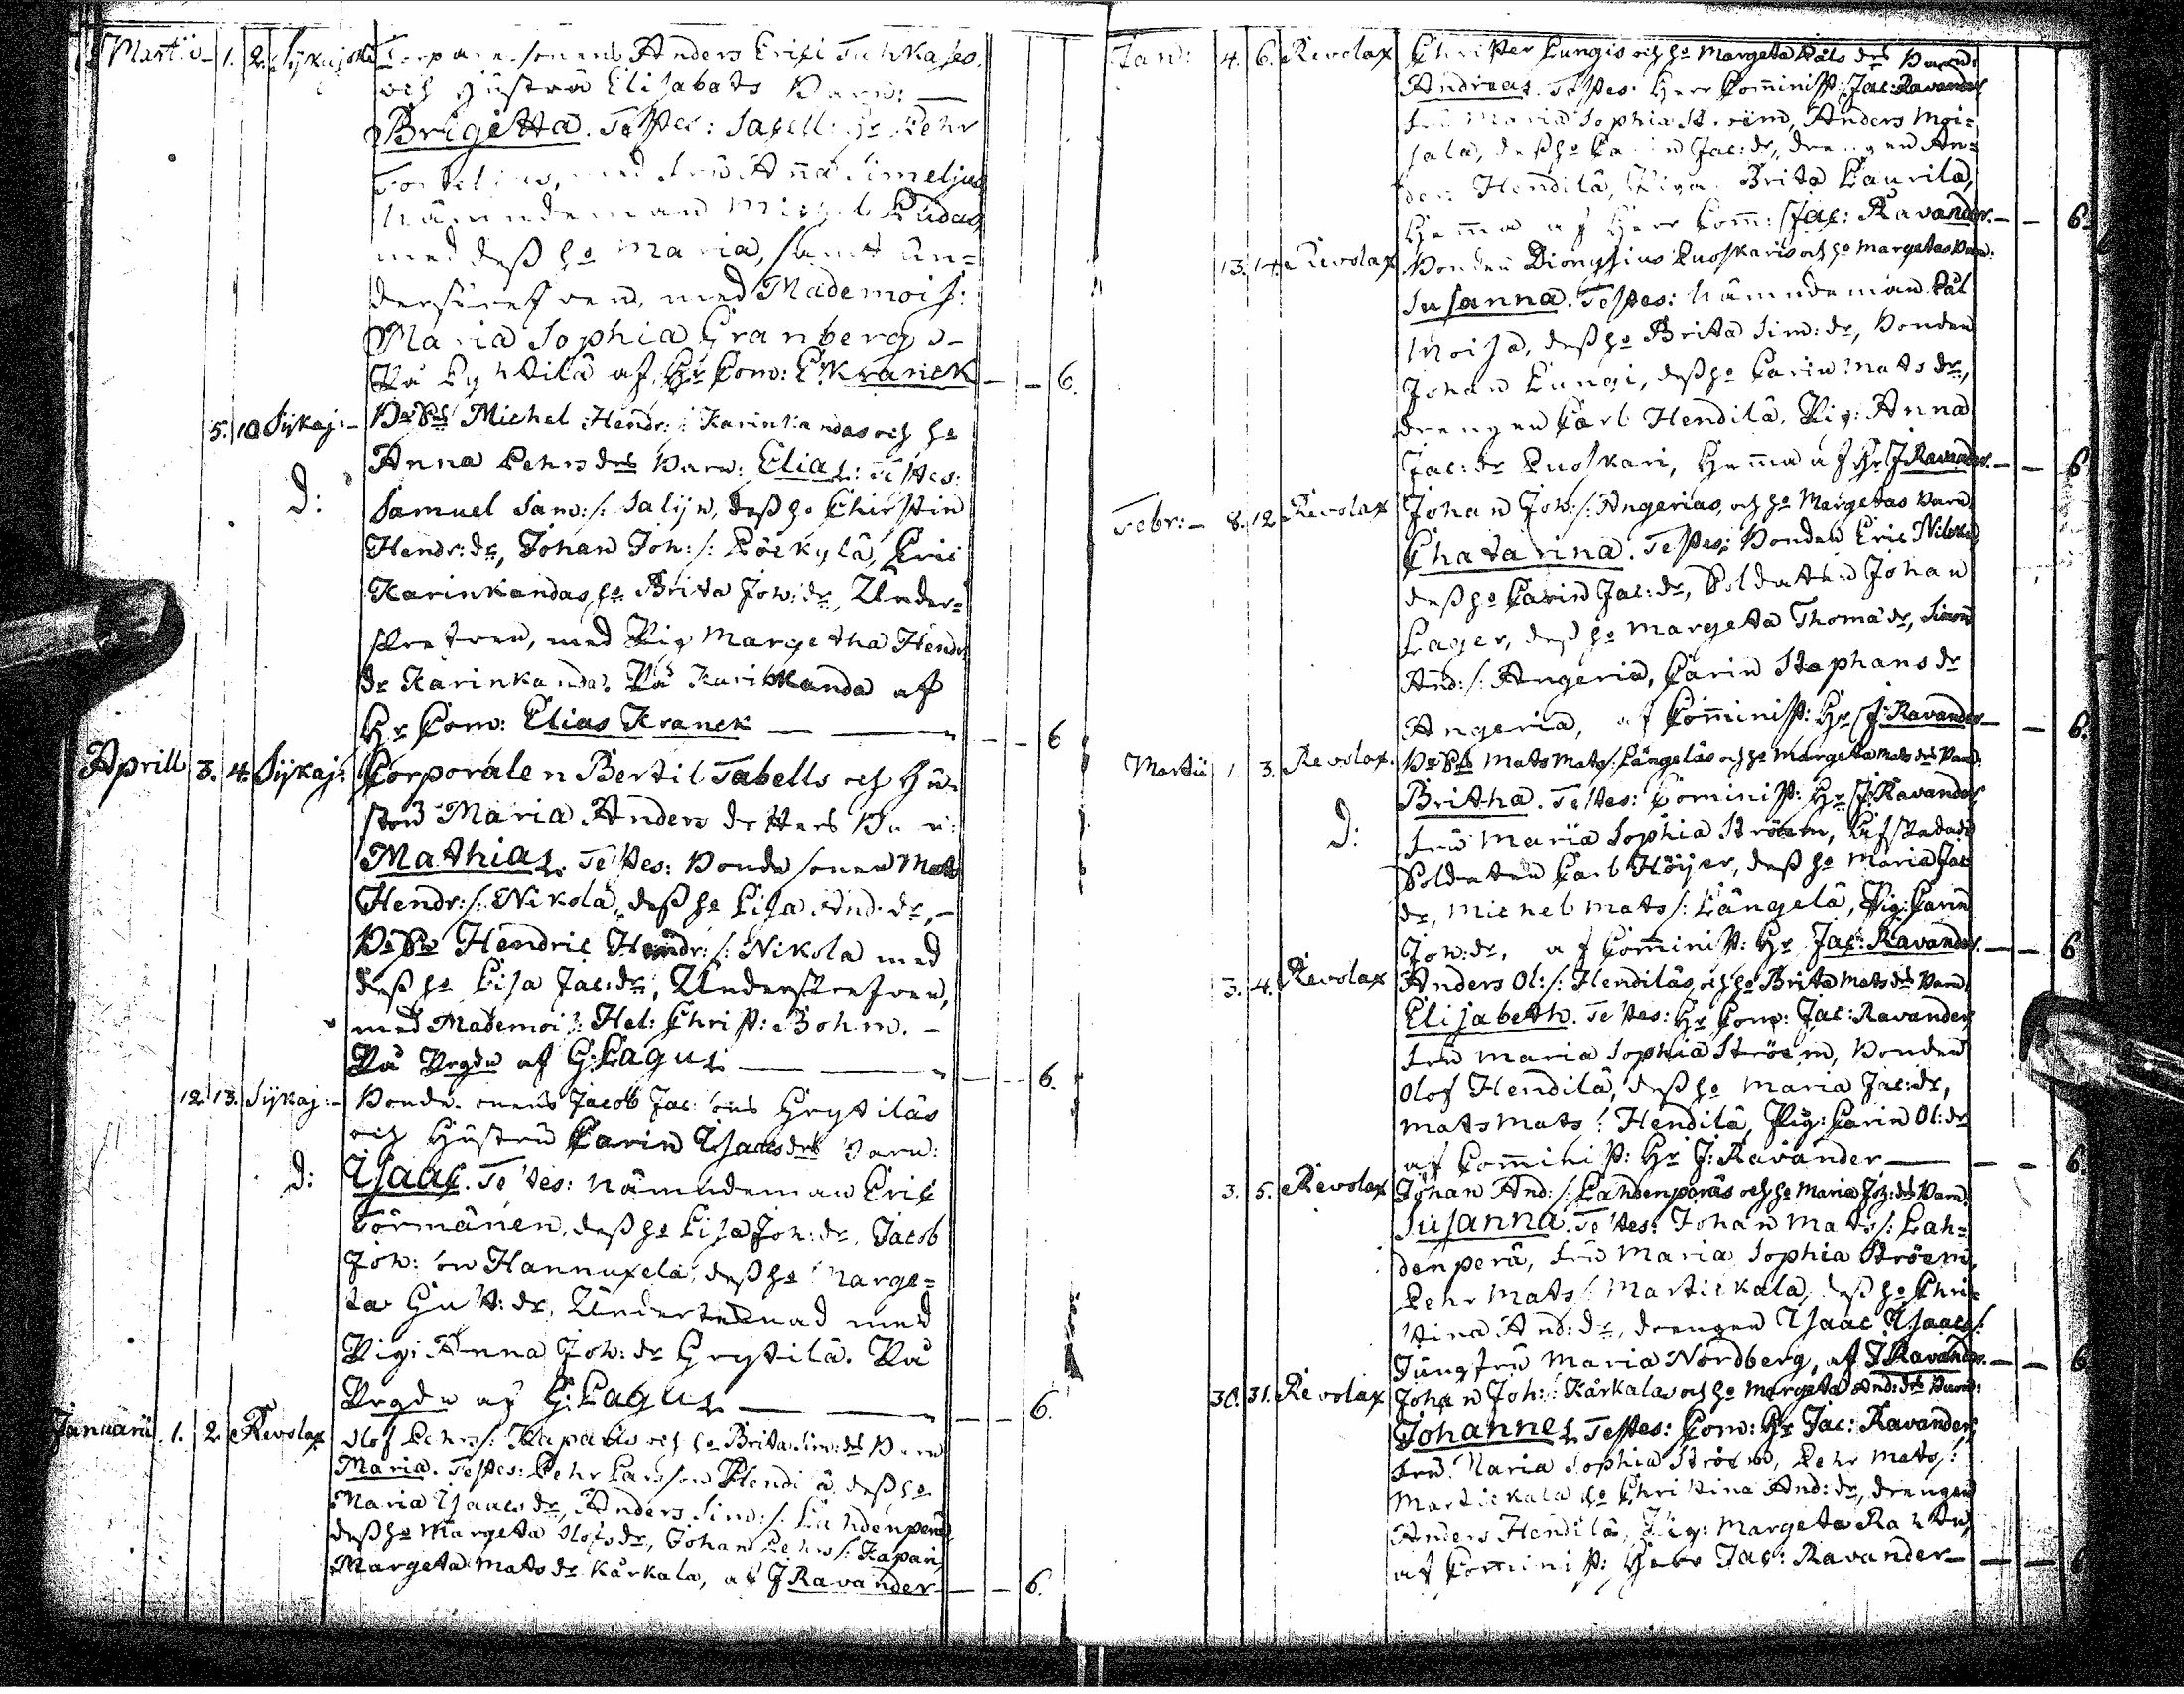 Martii 1. 2. Sijkajoki Torparesonens Anders Erici Tuhkases
och Hustru Elisabets Barn:
Brigetta. Testes: Sacell: Hr Pehr
med Fru Anna Simelius
Nämndeman Michel Pudas,
med dess ho Maria, samt un=
derskrefven, med Mademois:
Maria Sophia Granberg
På af Hr Com: E: Kranck — — 6.
5. 10. Sijkaj: Michel Hendr: s: Karinkandas och ho
Anna Pehrs drs Barn: Elias: Testes:
d: Samuel Sam: s: Salijn, dess ho Christin
Hendr: dr, Johan Joh: s: Pöckylä, Eric
Karinkandas, ho Brita Joh: dr, Under=
skrefven, med Pig Margetha Hendr
dr Karinkanda. På Karinkanda af
Hr Com: Elias Kranck — — 6
Aprill 3. 4. Sijkaj: Corporalen Bertil Tabells och Hu=
stru Maria Anders dotters Barn:
Mathias. Testes: Bondesonen Mats
Hendr: s: Nikola, dess ho Lisa And: dr, —
Hendric Hendr: s: Nikola med
dess ho Lisa Jac: dr, Underskrefven,
med Mademois: Hel: Christ: Bohm. —
På Prgdn af G: Lagus — — 6.
12. 13. Sijkaj: Bondesonens Jacob Jac: sons Grytiläs
och Hustru Carin Isaacs drs Barn:
d: Isaac. Testes: Nämndeman Eric
Törmänen, dess ho Lisa Joh: dr, Jacob
Joh: son Hannuxela, dess ho Marge=
ta Gust: dr, Undertecknad med
Pig: Anna Joh: dr Grytilä. På
Prgdn af G: Lagus — — 6.
Januarii 1. 2. Revolax Olof Pehrs s: Kaparis och ho Brita Sim: drs Barn
Maria. Testes: Pehr Larsson Hendilä dess ho
Maria Isaacs dr, Anders Sim: s: Lahdenperä
dess ho Margeta Olofs dr, Johan Pehrs s: Kapari,
Margeta Mats dr Kärkala, af J Ravander — — 6.
Jan: 4. 6. Revolax Christer Lungis och ho Margeta Påls drs Barn:
Andreas. Testes: Herr Comminist: Jac: Ravander
Fru Maria Sophia Ström, Anders Moi=
sala, dess ho Carin Jac: dr, drengen An=
ders Hendilä, Piga Brita Laurila,
Hemma af Herr Com: Jac: Ravander. — — 6.
13. 14. Revolax Bonden Dionysius Puoskaris och ho Margetas Barn:
Susanna. Testes: Nämndeman Pål
Moisa, dess ho Brita Sim: dr, Bonden
Johan Lungi, dess ho Carin Mats dr,
drengen Carl Hendilä, Pig: Anna
Jac: dr Puoskari, Hemma af Hr J Ravander. — — 6.
Febr: 8. 12. Revolax Johan Joh: s: Angerias, och ho Margetas Barn
Chatarina. Testes: Bonden Eric
dess ho Carin Jac: dr, Soldaten Johan
Lager, dess ho Margeta Thomæ dr, Simon
And: s: Angeria, Carin Staphans dr
Angeria, af Comminist: Hr J: Ravander — — 6.
Martii 1. 3. Revolax. Mats Mats s: Längeläs och ho Margeta Mats drs Barn:
Britha. Testes: Cominist: Hr J: Ravander,
d: Fru Maria Sophia Ström, Afskedade
Soldaten Carl Höijer, dess ho Maria Jac
dr, Michel Mats s: Längelä, Pig: Carin
Joh: dr, af Cominist: Hr Jac: Ravander. — — 6
3. 4. Revolax Anders Ol: s: Hendiläs, och ho Brita Mats drs Barn,
Elisabeth. Testes: Hr Com: Jac: Ravander,
Fru Maria Sophia Ström, Bonden
Olof Hendilä, dess ho Maria Jac: dr,
Mats Mats s: Hendilä, Pig: Carin Ol: dr
af Comminist: Hr J: Ravander — — 6.
3. 5. Revolax Johan And: s: Lahdenperäs och ho Maria Joh: drs Barn:
Susanna. Testes: Johan Mats s: Lah=
denperä, Fru Maria Sophia Ström,
Pehr Mats s: Martickala, dess ho Chri=
stina And: dr, drengen Isaac Isaacs s:
Jungfru Maria Nordberg, af J Ravander. — — 6
30. 31. Revolax Johan Joh: s: Kärkalas och ho Margeta And: drs Barn:
Johannes. Testes: Com: Hr Jac: Ravander,
Fru Maria Sophia Ström, Pehr Mats s:
Martickala ho Christina And: dr, drengen
Anders Hendilä, Pig: Margeta
af Cominist: Herr Jac: Ravander — — 6